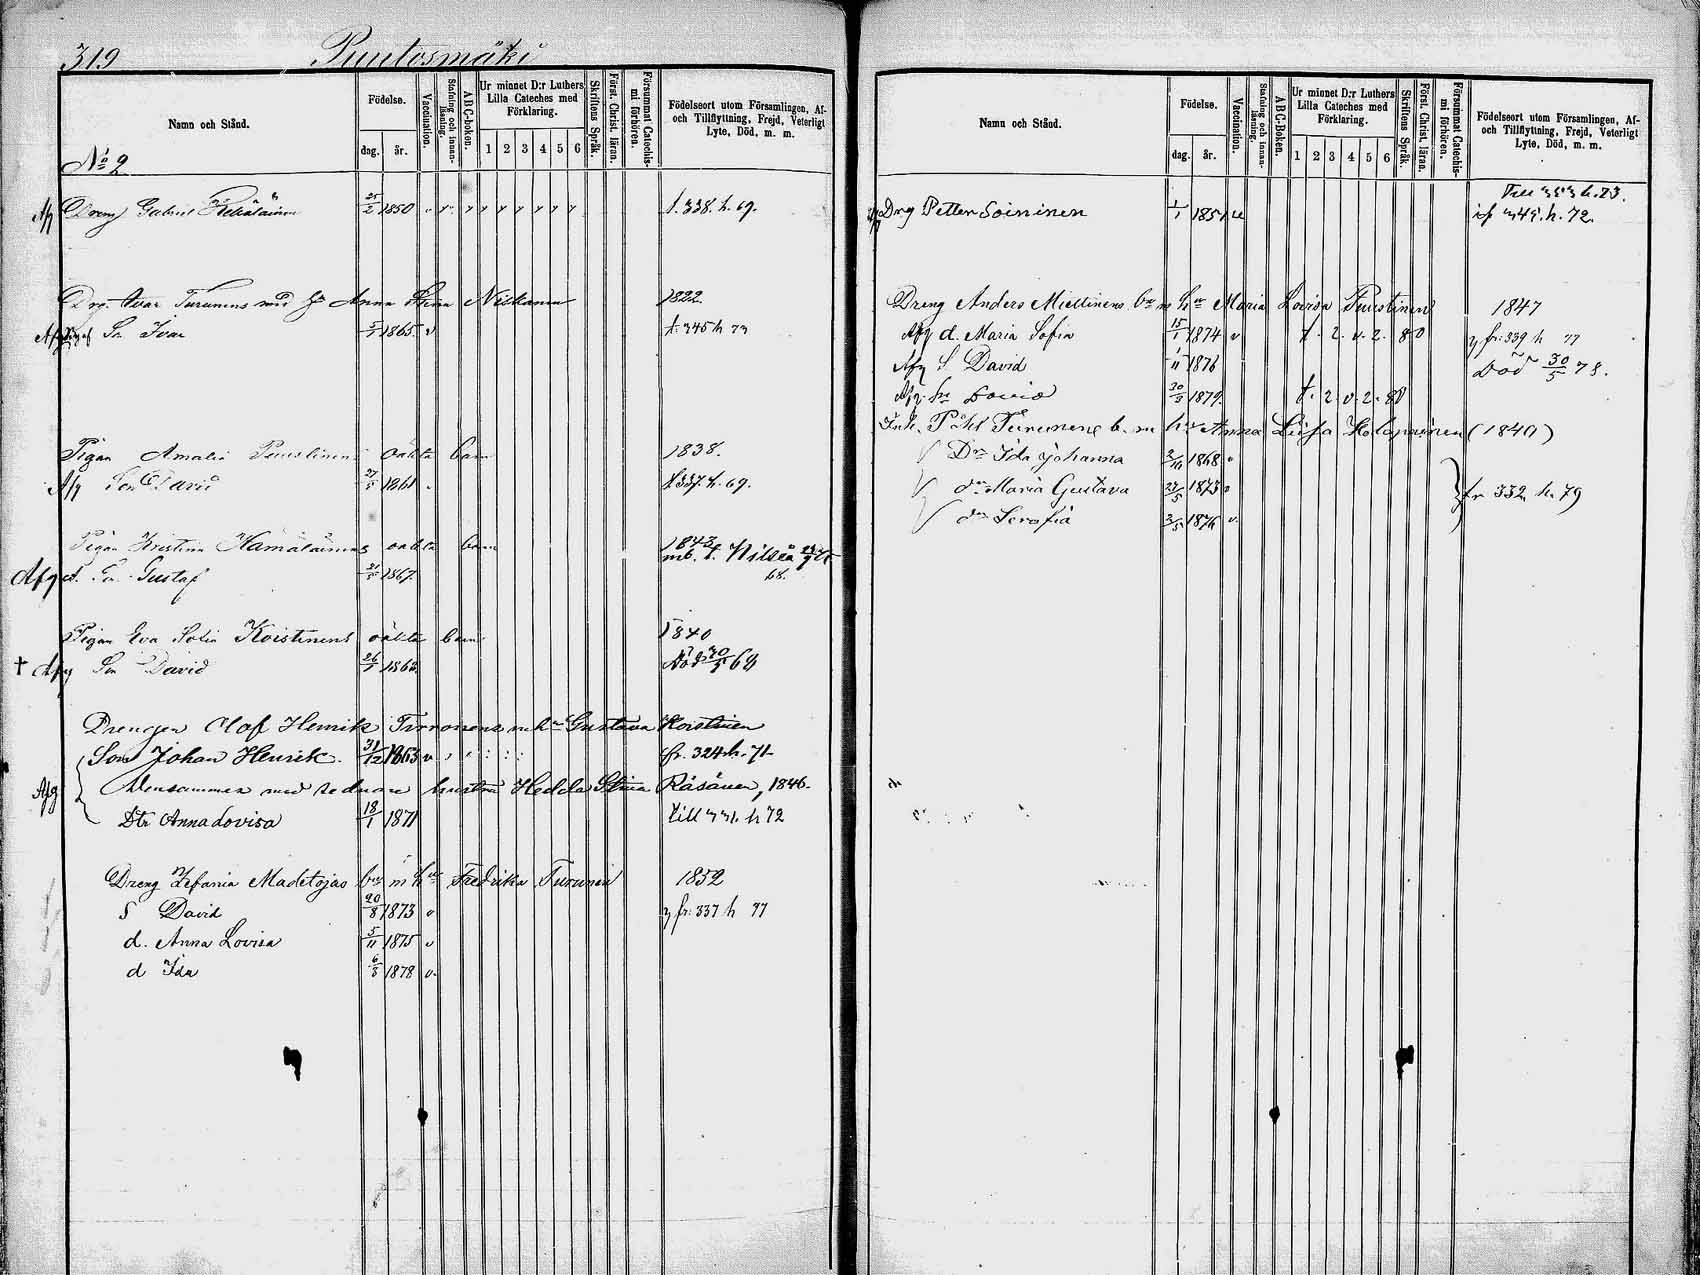 319 Puutosmäki
Namn och Stånd.
Födelse.
dag. år.
Vaccination.
Stafning och innan-läsning.
ABC-boken.
Ur minnet D:r Luthers Lilla Cateches med Förklaring.
1 2 3 4 5 6
Skriftens Språk.
Först. Christ. läran.
Försummat Catechis-mi förhören.
Födelseort utom Församlingen, Af- och Tillflyttning, Frejd, Veterligt Lyte, Död, m. m.
No 2
Afg Dreng Gabriel 25/2 1850 t. 338. h. 69.
Drg. Ivar Turunens med hu Anna Stina Niskanen 1822
Sn Ivar 5/1 1865 v t. 345 h 73
Pigan Amalia Puustinens oäkta barn 1838.
Afg Son David 27/5 1861 t 337. h. 69.
Pigan Kristina Hämäläinens oäkta barn 1843
mb. t. Nilsiä
68.
Afg Sn. Gustaf 21/5 1867.
Pigan Eva Sofia Koistinens oäkta barn 1840
† Afg Sn David 26/1 1862 Död 30/5 68
Drengen Olof Henrik Tirronens m h Gustava Koistinen
Son Johan Henrik. 31/12 1863 v fr. 324 h. 71
Afg Densammes med sednare hustru Hedda Stina Räsänen, 1846.
Dtr Anna Lovisa 18/1 1871 till 331. h 72
Dreng Zefania Madetojas bn m hu Fredrika Turunen 1852
S David 20/8 1873 v y fr: 337 h 77
d. Anna Lovisa 5/11 1875 v
d Ida 6/8 1878 v.
Namn och Stånd.
Födelse.
dag. år.
Vaccination.
Stafning och innan-läsning.
ABC-Boken.
Ur minnet D:r Luthers Lilla Cateches med Förklaring.
1 2 3 4 5 6
Skriftens Språk.
Först. Christ. läran.
Försummat Catechis-mi förhören.
Födelseort utom Församlingen, Af- och Tillflyttning, Frejd, Veterligt Lyte, Död, m. m.
Till 353 h. 73.
Drg Petter Soininen 1/1 1851 349. h. 72.
Dreng Anders Miettinens bn m hu Maria Lovisa Puustinen 1847
Afg d. Maria Sofia 15/1 1874 v t. 2. v. 2. 80 y fr: 339 h 77
Afg S David 1/11 1876 Död 30/5 78.
Afg. Lovisa 30/3 1879. t. 2. v. 2. 80
Inh. Turunens b. m hu Anna Lisa Holopainen (1840)
Dr Ida Johanna 2/10 1868 v
dr Maria Gustava 23/5 1873 v fr 332 h. 79
dr Serafia 2/5 1876 v.